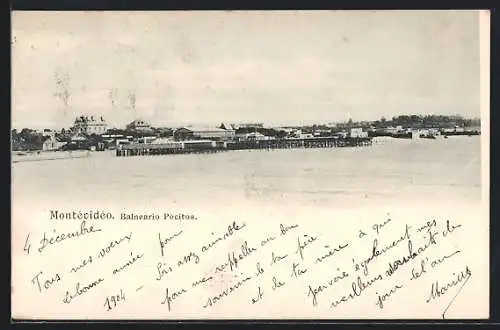 Montévidéo. Balneario Pocitos.
4 Décembre
Tous mes vœux pour
la bonne année
1904 - Sis assez aimable
pour me rappeller au bon
souvenir de ton père
et de ta mère à qui
j'envoie également mes
meilleurs vœux de
jour de l'an
Marius